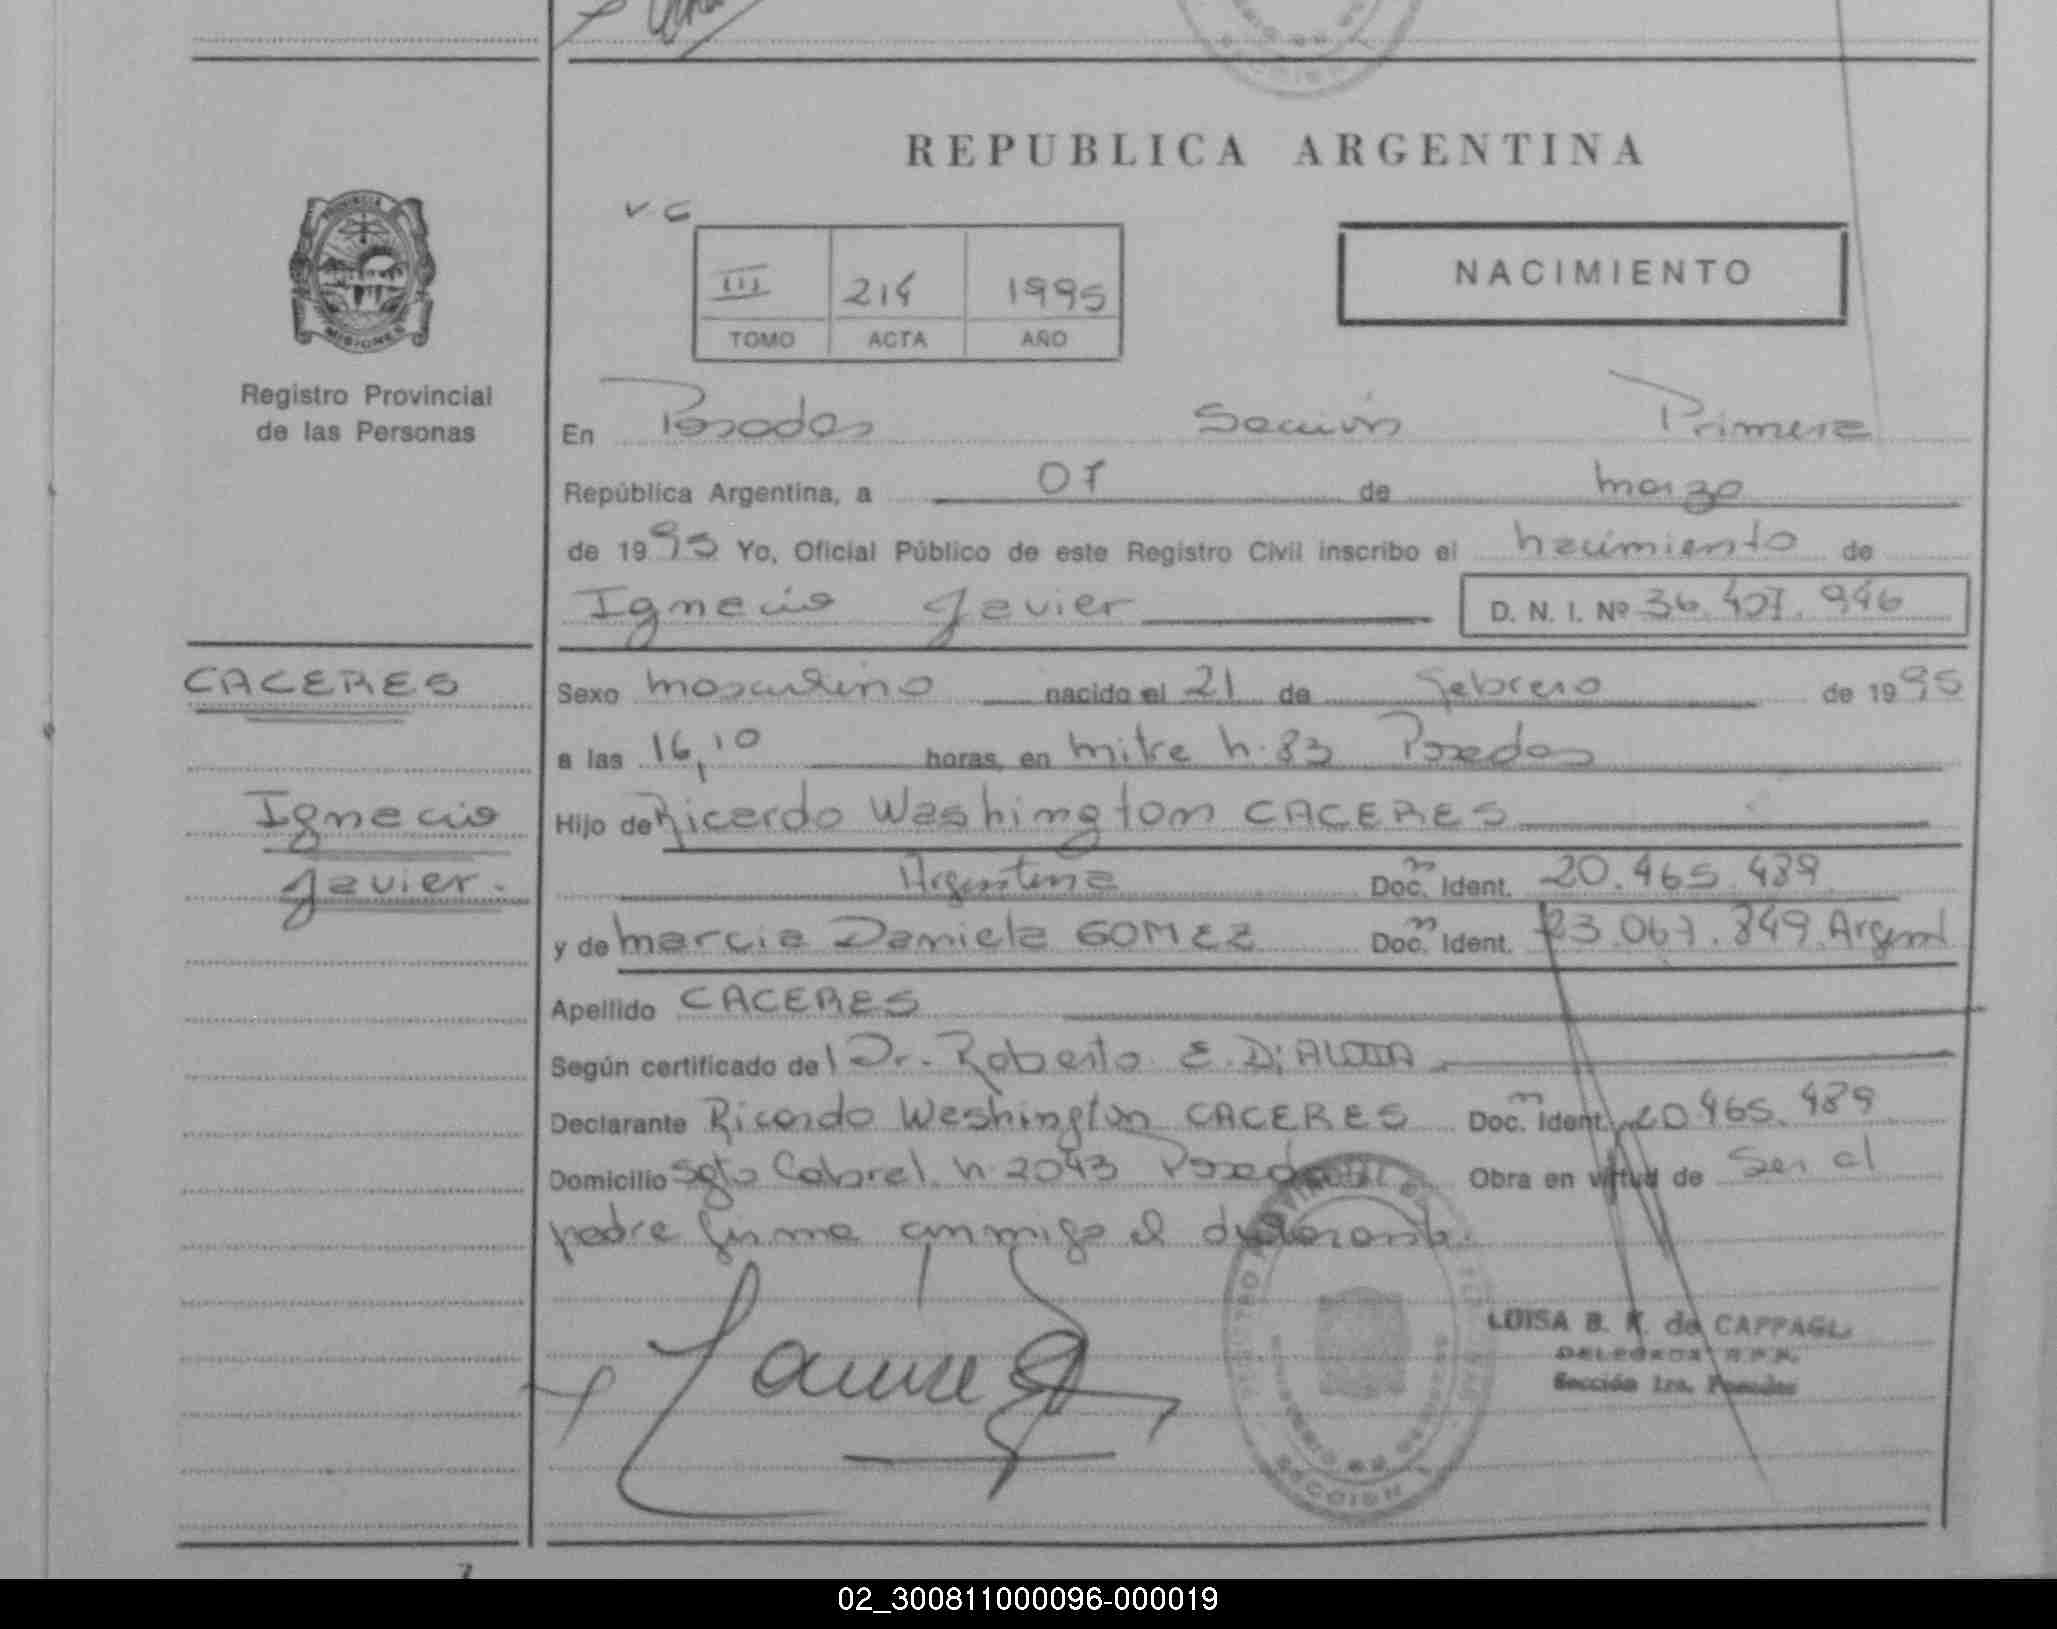 REPUBLICA ARGENTINA
V C
III 214 1995
TOMO ACTA AÑO
NACIMIENTO
MISIONES
Registro Provincial
de las Personas
En Posadas Sección Primera
República Argentina, a 07 de marzo
de 1995 Yo, Oficial Público de este Registro Civil inscribo el nacimiento de
Ignacio Javier D. N. I. Nº 36.407.946
CACERES
Ignacio
Javier.
Sexo masculino nacido el 21 de febrero de 1995
a las 16,10 horas, en mitre n. 83 Posadas
Hijo de Ricardo Washington CACERES
Argentina Doc. Ident. 20.465.489
y de Marcia Daniela GOMEZ Doc. Ident. 23.067.849 Argent
Apellido CACERES
Según certificado del Dr. Roberto E.
Declarante Ricardo Washington CACERES Doc. Ident. 20.465.489
Domicilio Sgto Cabral n. 2043 Posadas Obra en virtud de Ser el
padre firma conmigo el declarante.
LUISA B. K. de CAPPAGLI
DELEGADA R.P.P.
Sección 1ra. Posadas
SECCION 1
02_300811000096-000019